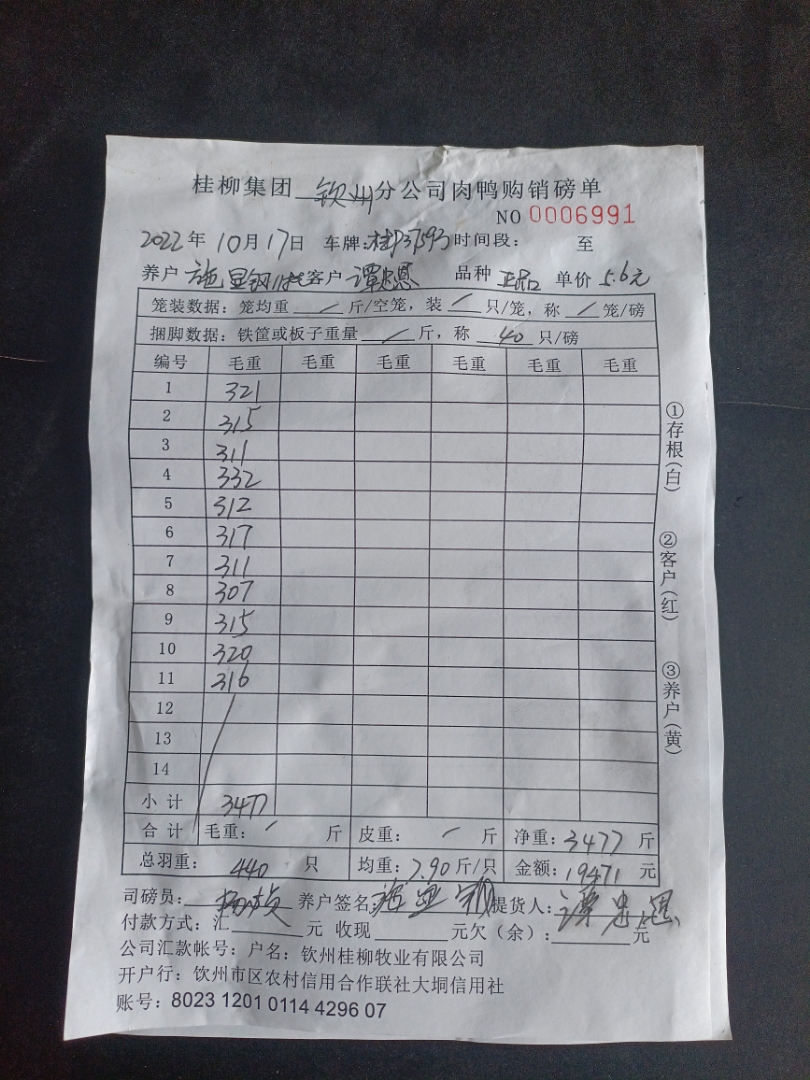 桂柳集团 钦州 分公司肉鸭购销磅单
NO 0006991
2022年10月17日 车牌: 时间段： 至
养户 客户 谭忠恩 品种 正品 单价 5.6元
笼装数据：笼均重 / 斤/空笼，装 / 只/笼，称 / 笼/磅
捆脚数据：铁筐或板子重量 / 斤，称 40 只/磅
编号 毛重 毛重 毛重 毛重 毛重 毛重
1 321
2 315
3 311
4 332
5 312
6 317
7 311
8 307
9 315
10 320
11 316
12
13
14
小计 3477
合计 毛重： / 斤 皮重： / 斤 净重：3477 斤
总羽重： 440 只 均重：7.90斤/只 金额：19471 元
司磅员： 养户签名： 提货人：谭忠恩
付款方式：汇 元 收现 元欠（余）： 元
公司汇款帐号：户名：钦州桂柳牧业有限公司
开户行：钦州市区农村信用合作联社大垌信用社
账号：8023 1201 0114 4296 07
①存根(白)
②客户(红)
③养户(黄)